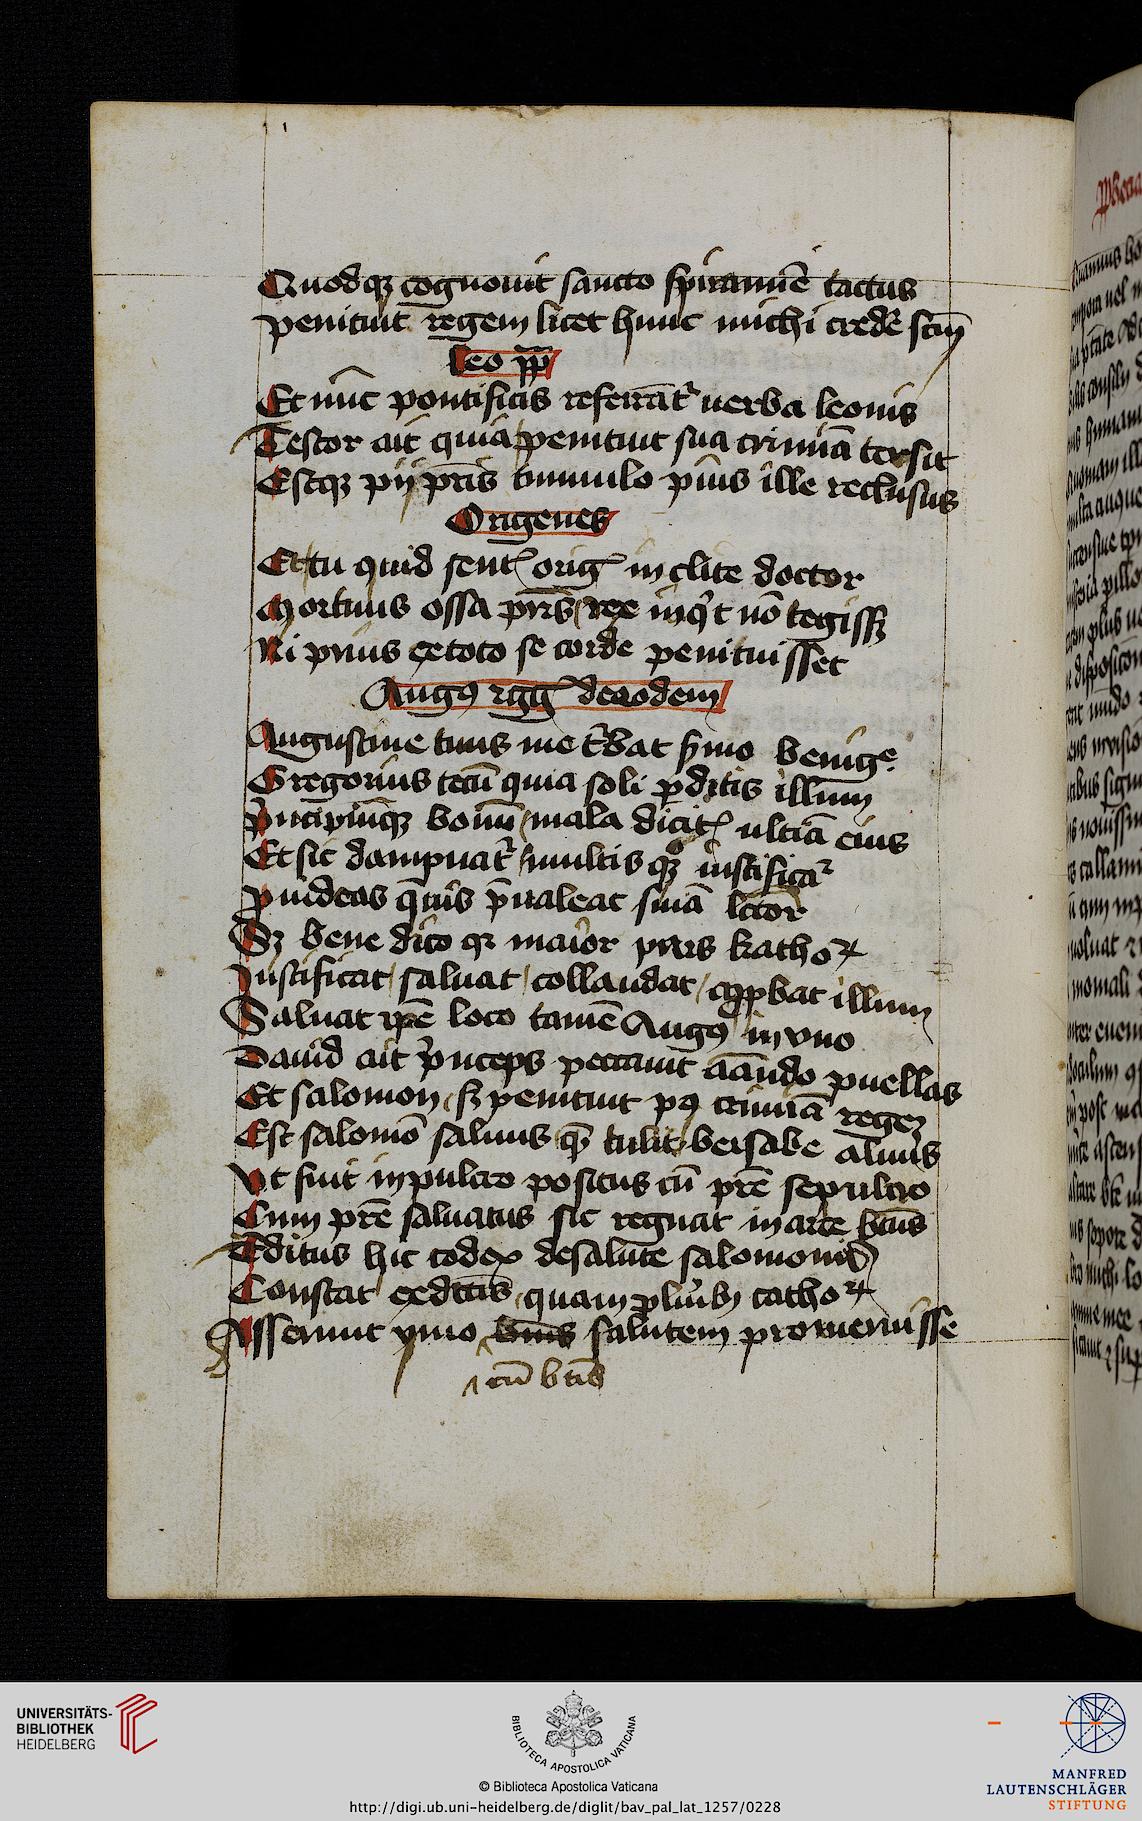 Quodqz cognouit sancto spiramīe tactus
penituit regem licet hunc michi credē scm̄
leo pp̄
Et nūc pontificis referāt᷑ uerba leonis
Testor ait quia penituit sua crimīa tersit
Estqz pij pr̄is tumulo pius ille reclusus
Origenes
Et tu quid sent orig inclite doctor
Mortuus ossa pr̄is rex inqͥt nō tegiss
Ni prius ex toto se corde penituisset
Augꝰ de eodem
Augustine tuus me t᷑bat sermo benigᵉ
Gregorius tecū quia soli ꝑditis illum
pͥncipiūqz bonū mala dicit ultīa eius
Et sic dampnat᷑ multis qz iustificat᷑
ꝓuideas p̄ualeat snīa lector
Sz bene dico qr maior pars kathoꝝ
Iustificat saluat collaudat apꝓbat illum
Saluat ip̄e loco tamē Augꝰ in vno
Dauid ait pͥnceps peccauit amando puellas
Et salomon sz penituit pꝰ crimīa regez
Est salomō saluus qz tulit bersabe aluus
Vt fuit in pulcro positus cū pr̄e sepulcro
Cum pr̄e saluatus sic regnat in arce btūs
Editus hic codex de salute salomonis
Constat ex dictis quam plurib catho ꝝ
Asserunt ymo salutem promeruisse
cū btīs
UNIVERSITÄTS-
BIBLIOTHEK
HEIDELBERG
BIBLIOTECA APOSTOLICA VATICANA
© Biblioteca Apostolica Vaticana
http://digi.ub.uni-heidelberg.de/diglit/bav_pal_lat_1257/0228
MANFRED
LAUTENSCHLÄGER
STIFTUNG